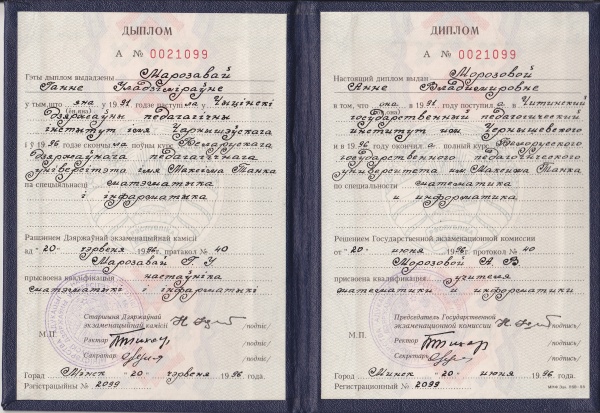 ДЫПЛОМ
А № 0021099
Гэты дыплом выдадзены Марозавай
Ганне Уладзіміраўне
у тым, што яна у 1991 годзе паступіла ў Чыцінскі
(ён, яна)
дзяржаўны педагагічны
інстытут імя Чарнышэўскага
і ў 1996 годзе скончыла поўны курс Беларускага
дзяржаўнага педагагічнага
універсітэта імя Максіма Танка
па спецыяльнасці матэматыка
і інфарматыка
Рашэннем Дзяржаўнай экзаменацыйнай камісіі
ад "20" чэрвеня 1996 г. пратакол № 40
Марозавай Г. У.
прысвоена кваліфікацыя настаўніка
матэматыкі і інфарматыкі
Старшыня Дзяржаўнай
экзаменацыйнай камісіі /подпіс/
М.П.
Рэктар /подпіс/
Сакратар /подпіс/
Горад Мінск "20" чэрвеня 1996 года.
Рэгістрацыйны № 2099
ДИПЛОМ
А № 0021099
Настоящий диплом выдан Морозовой
Анне Владимировне
в том, что она в 1991 году поступила в Читинский
(он, она)
государственный педагогический
институт им. Чернышевского
и в 1996 году окончила полный курс Белорусского
государственного педагогического
университета им. Максима Танка
по специальности математика
и информатика
Решением Государственной экзаменационной комиссии
от "20" июня 1996 г. протокол № 40
Морозовой А. В.
присвоена квалификация учителя
математики и информатики
Председатель Государственной
экзаменационной комиссии /подпись/
М.П.
Ректор /подпись/
Секретарь /подпись/
Город Минск "20" июня 1996 года.
Регистрационный № 2099